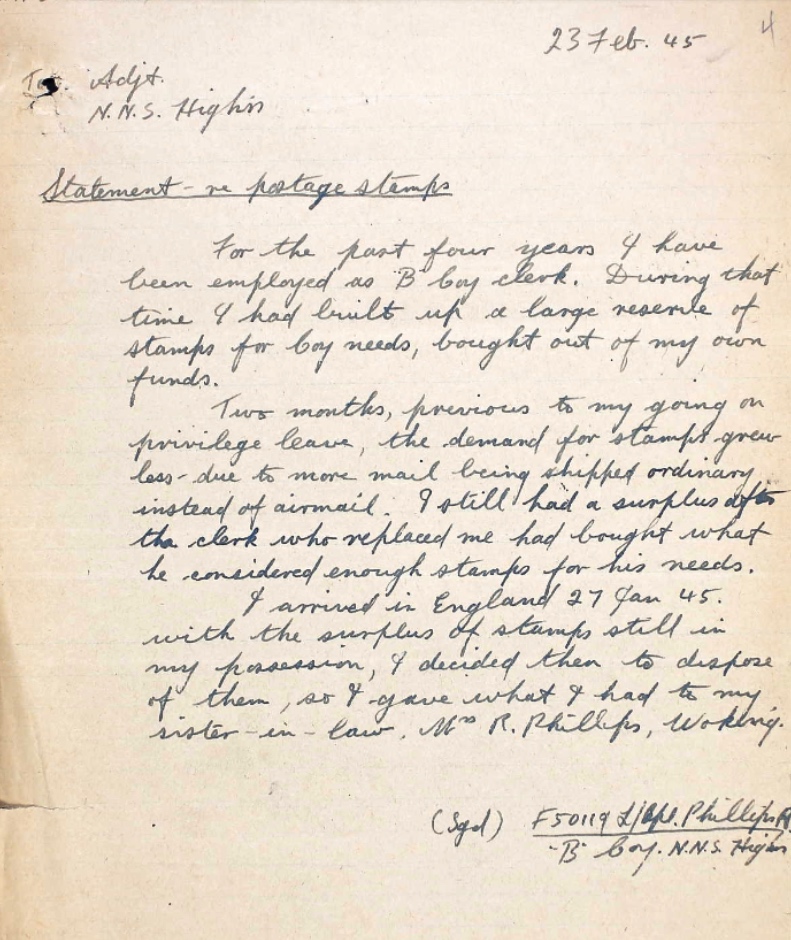 4
23 Feb. 45
To. Adjt.
N.N.S. Highrs
Statement - re postage stamps
For the past four years I have
been employed as "B" Coy clerk. During that
time I had built up a large reserve of
stamps for Coy needs, bought out of my own
funds.
Two months, previous to my going on
privilege leave, the demand for stamps grew
less - due to more mail being shipped ordinary
instead of airmail. I still had a surplus after
the clerk who replaced me had bought what
he considered enough stamps for his needs.
I arrived in England 27 Jan 45.
with the surplus of stamps still in
my possession, I decided then to dispose
of them, so I gave what I had to my
sister-in-law, Mrs R. Phillips, Woking.
(Sgd) F50119 L/Cpl. Phillips
"B" Coy. N.N.S. Highrs